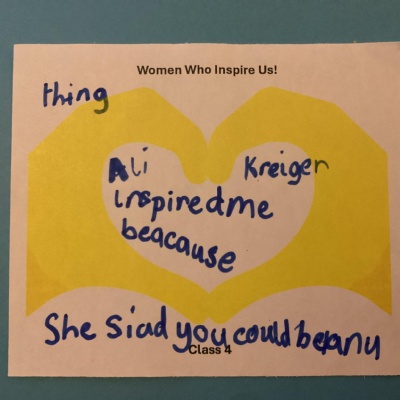 Women Who Inspire Us!
thing
Ali Kreiger
inspired me
beacause
She siad you could be anu
Class 4